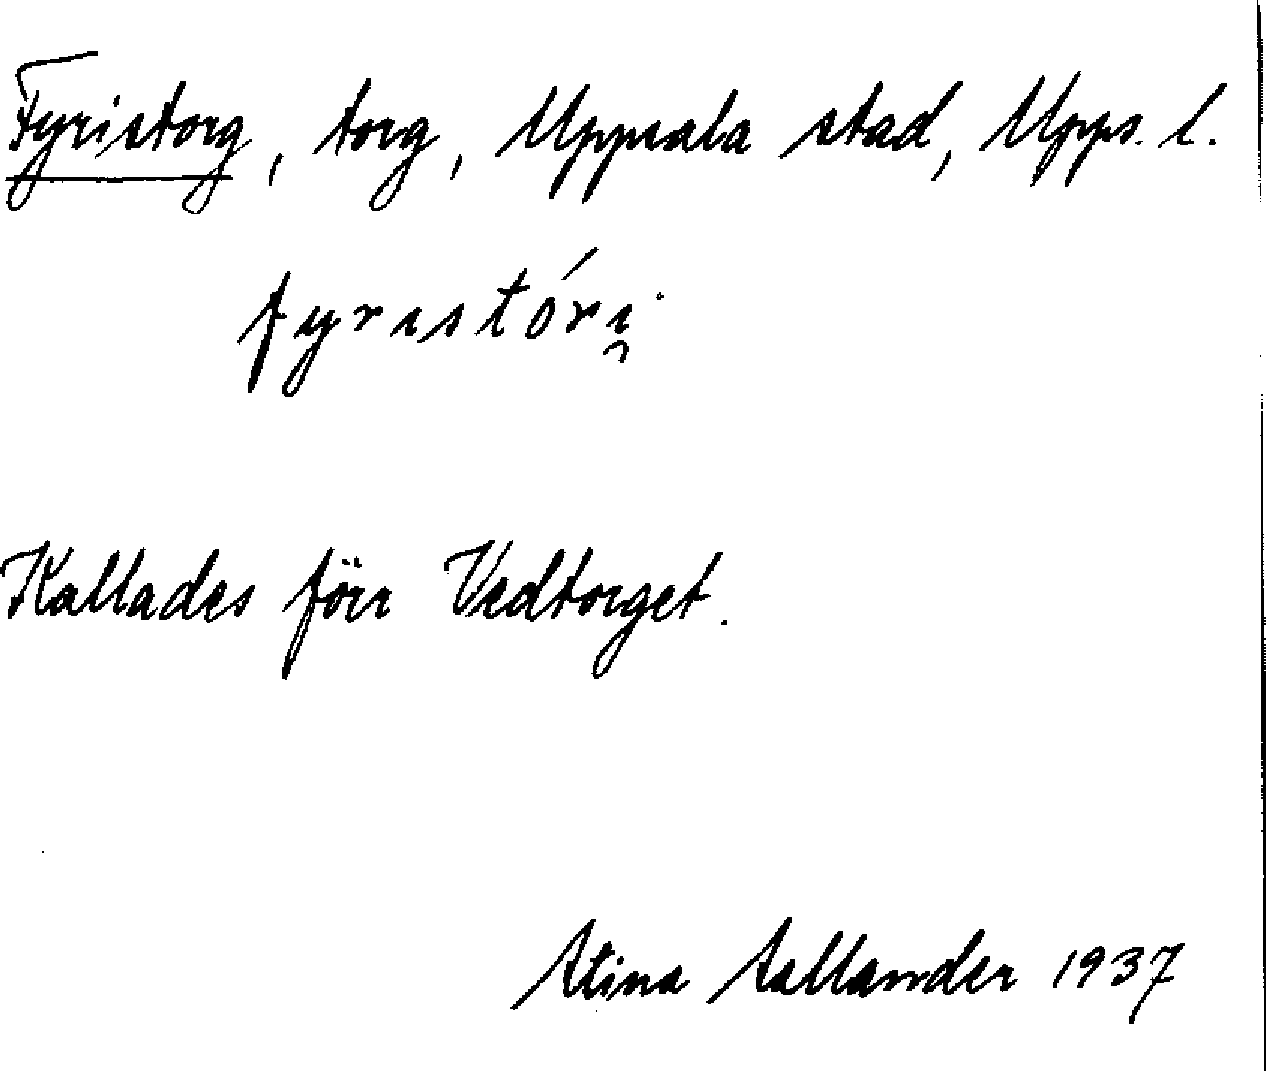 Fyristorg, torg, Uppsala stad, Upps. l.
fyristóri̯
Kallades förr Vedtorget.
Stina Sallander 1937